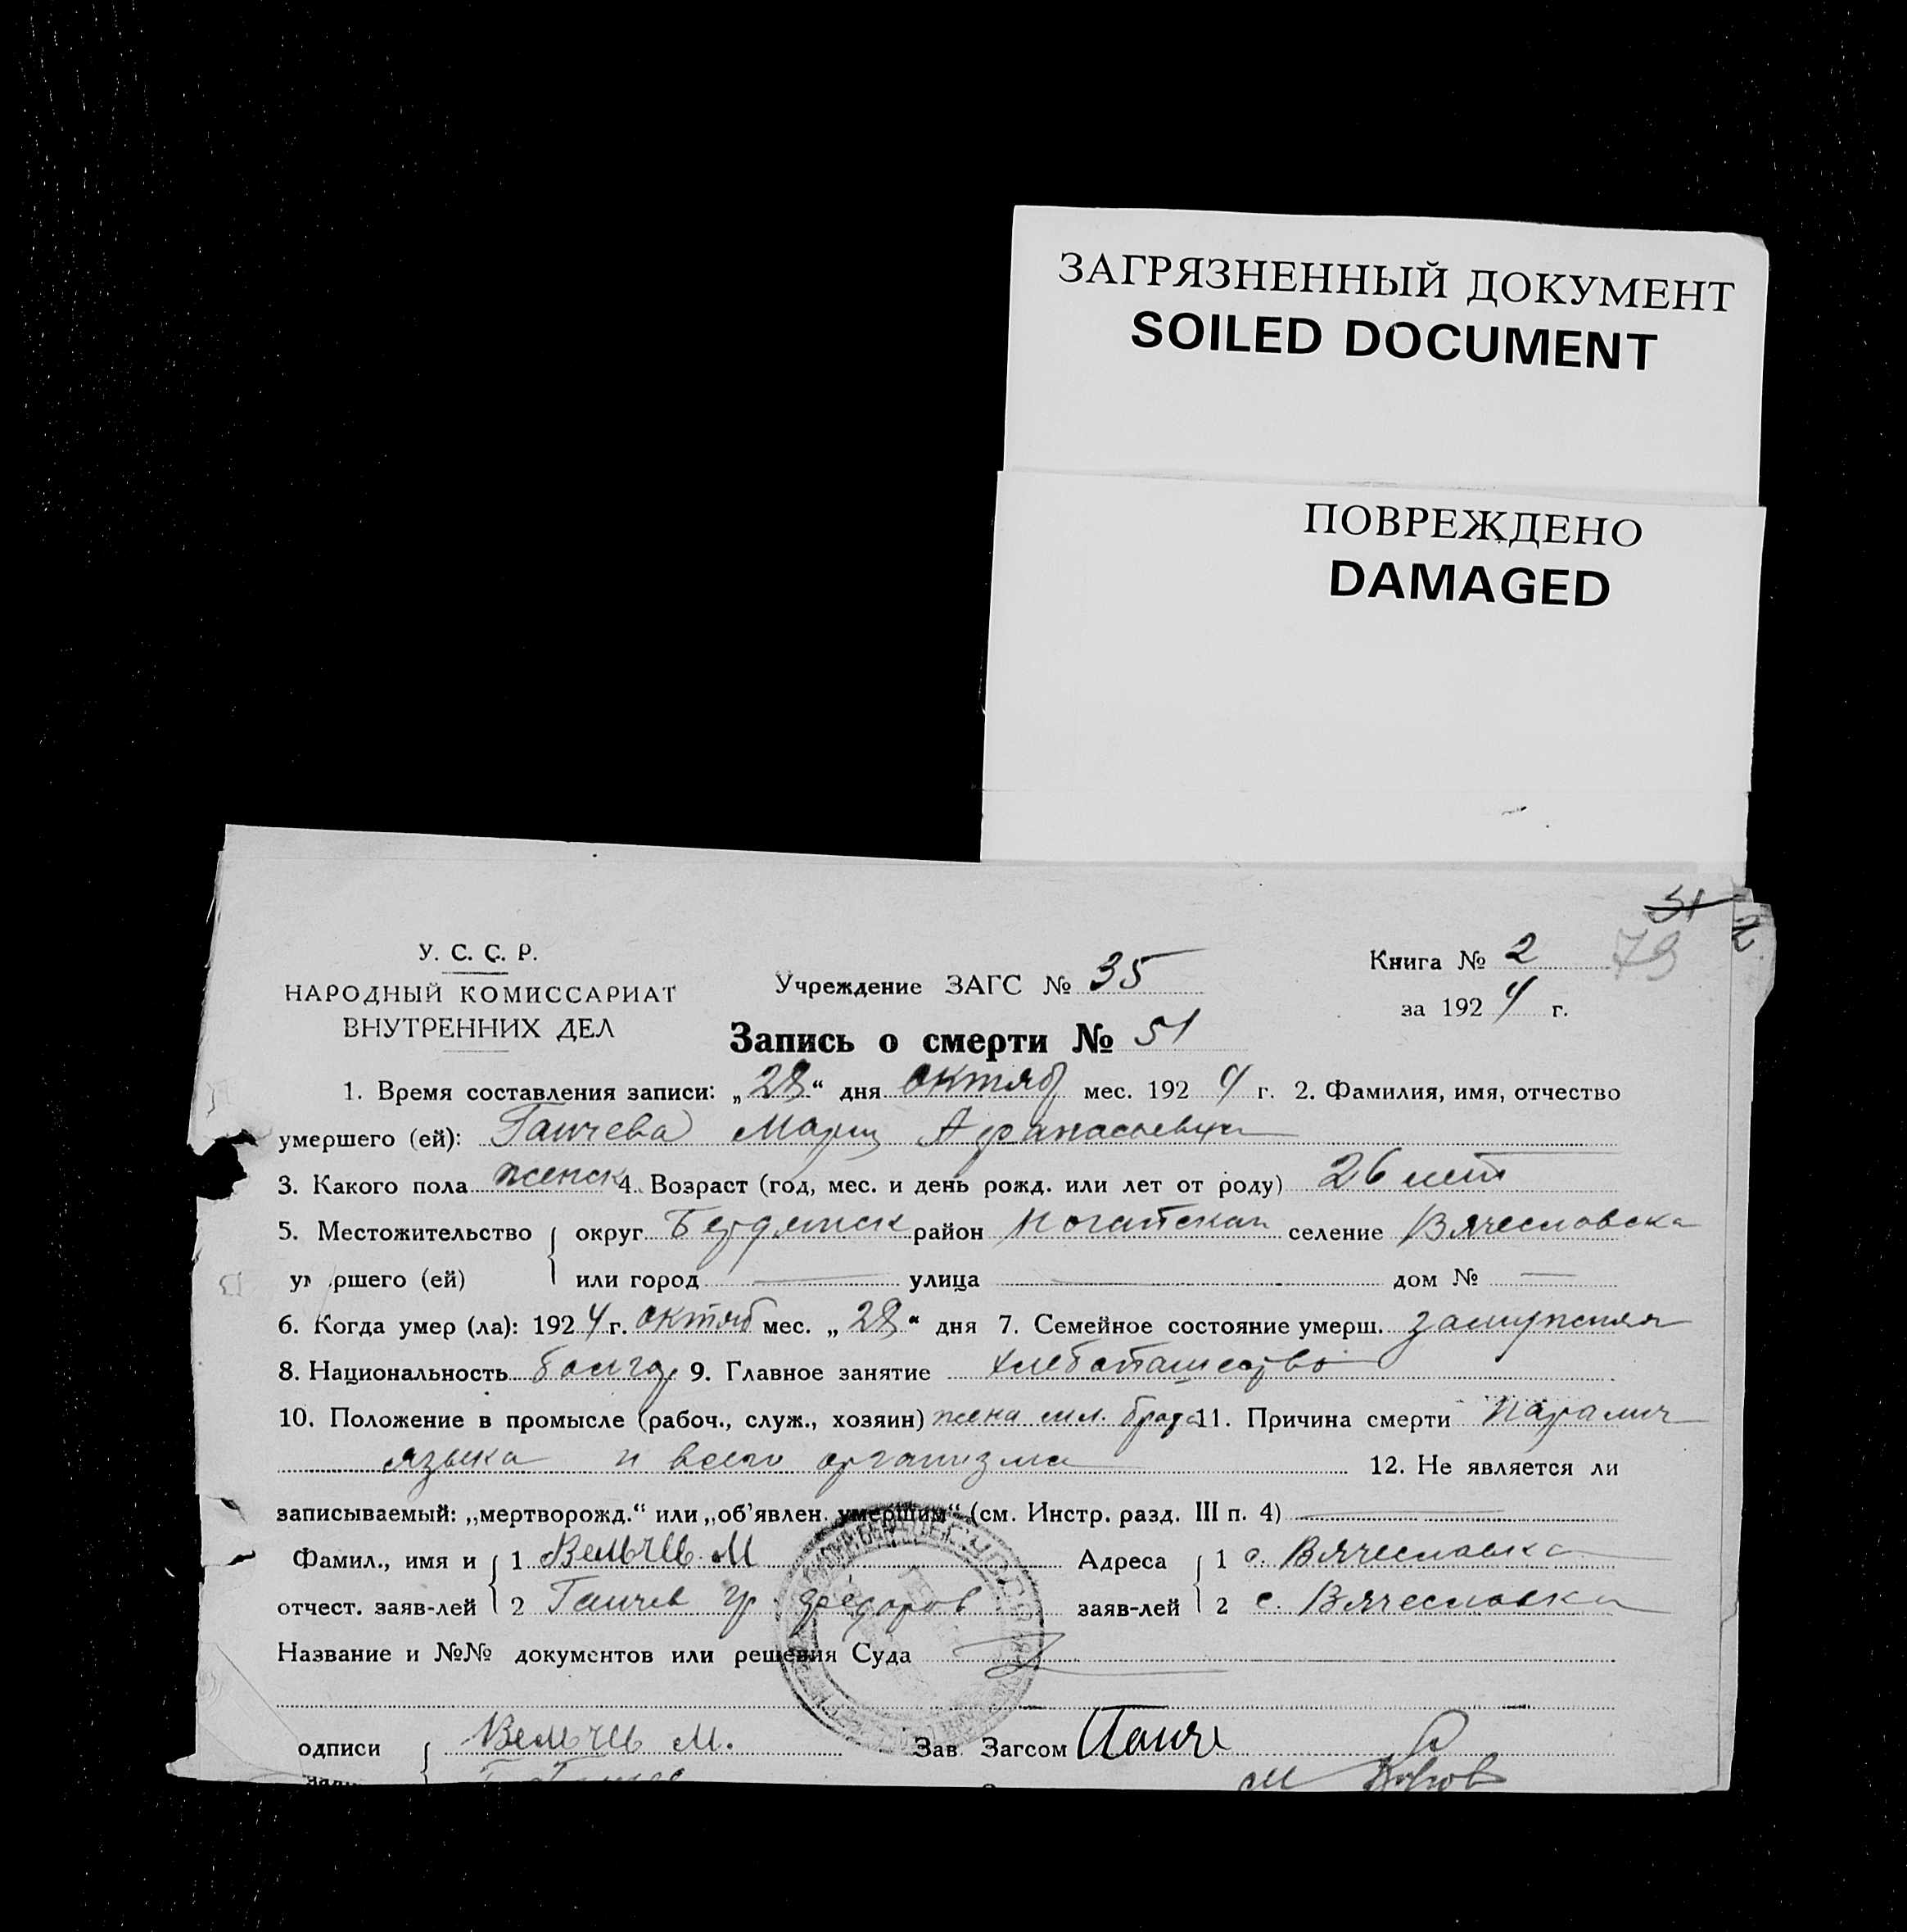 ЗАГРЯЗНЕННЫЙ ДОКУМЕНТ
SOILED DOCUMENT
ПОВРЕЖДЕНО
DAMAGED
51 2
79
У. С. С. Р.
НАРОДНЫЙ КОМИССАРИАТ
ВНУТРЕННИХ ДЕЛ
Учреждение ЗАГС № 35
Книга № 2
за 1924 г.
Запись о смерти № 51
1. Время составления записи: „28“ дня октяб мес. 1924 г. 2. Фамилия, имя, отчество
умершего (ей): Ганчева Афанасьевна
3. Какого пола женск 4. Возраст (год, мес. и день рожд. или лет от роду) 26 лет
5. Местожительство округ Бердянск район Ногайский селение Вячеславовка
ум ршего (ей) или город — улица — дом № —
6. Когда умер (ла): 1924 г. октяб мес. „28“ дня 7. Семейное состояние умерш. замужняя
8. Национальность болгар 9. Главное занятие хлебопашество
10. Положение в промысле (рабоч., служ., хозяин) жена мл. брата 11. Причина смерти Паралич
языка и всего организма 12. Не является ли
записываемый: „мертворожд.“ или „об’явлен. умершим“ (см. Инстр. разд. III п. 4) —
Фамил., имя и 1 Вельчев М Адреса 1 с. Вячеславка
отчест. заяв-лей 2 Ганчев Гр. Федоров заяв-лей 2 с. Вячеславка
Название и №№ документов или решения Суда
одписи Вельчев М. Зав. Загсом